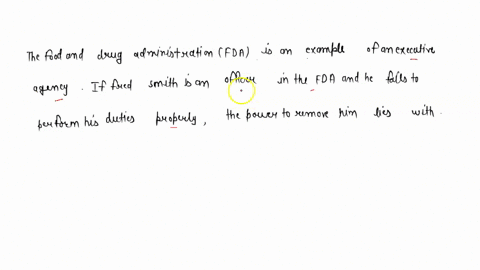 The food and drug administration (FDA) is an example of an executive
agency. If fred smith is an officer in the FDA and he fails to
perform his duties properly, the power to remove him lies with.